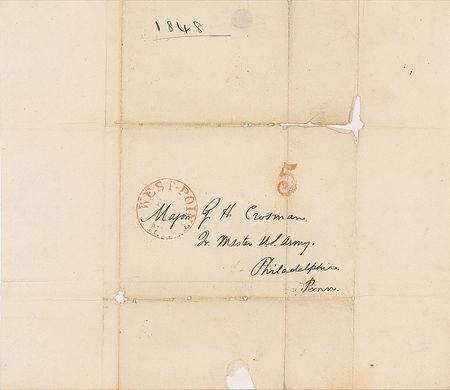 1848
5
WEST-POINT
N.Y.
Major G. H. Crosman
Qr. Master US. Army.
Philadelphia.
Penn.